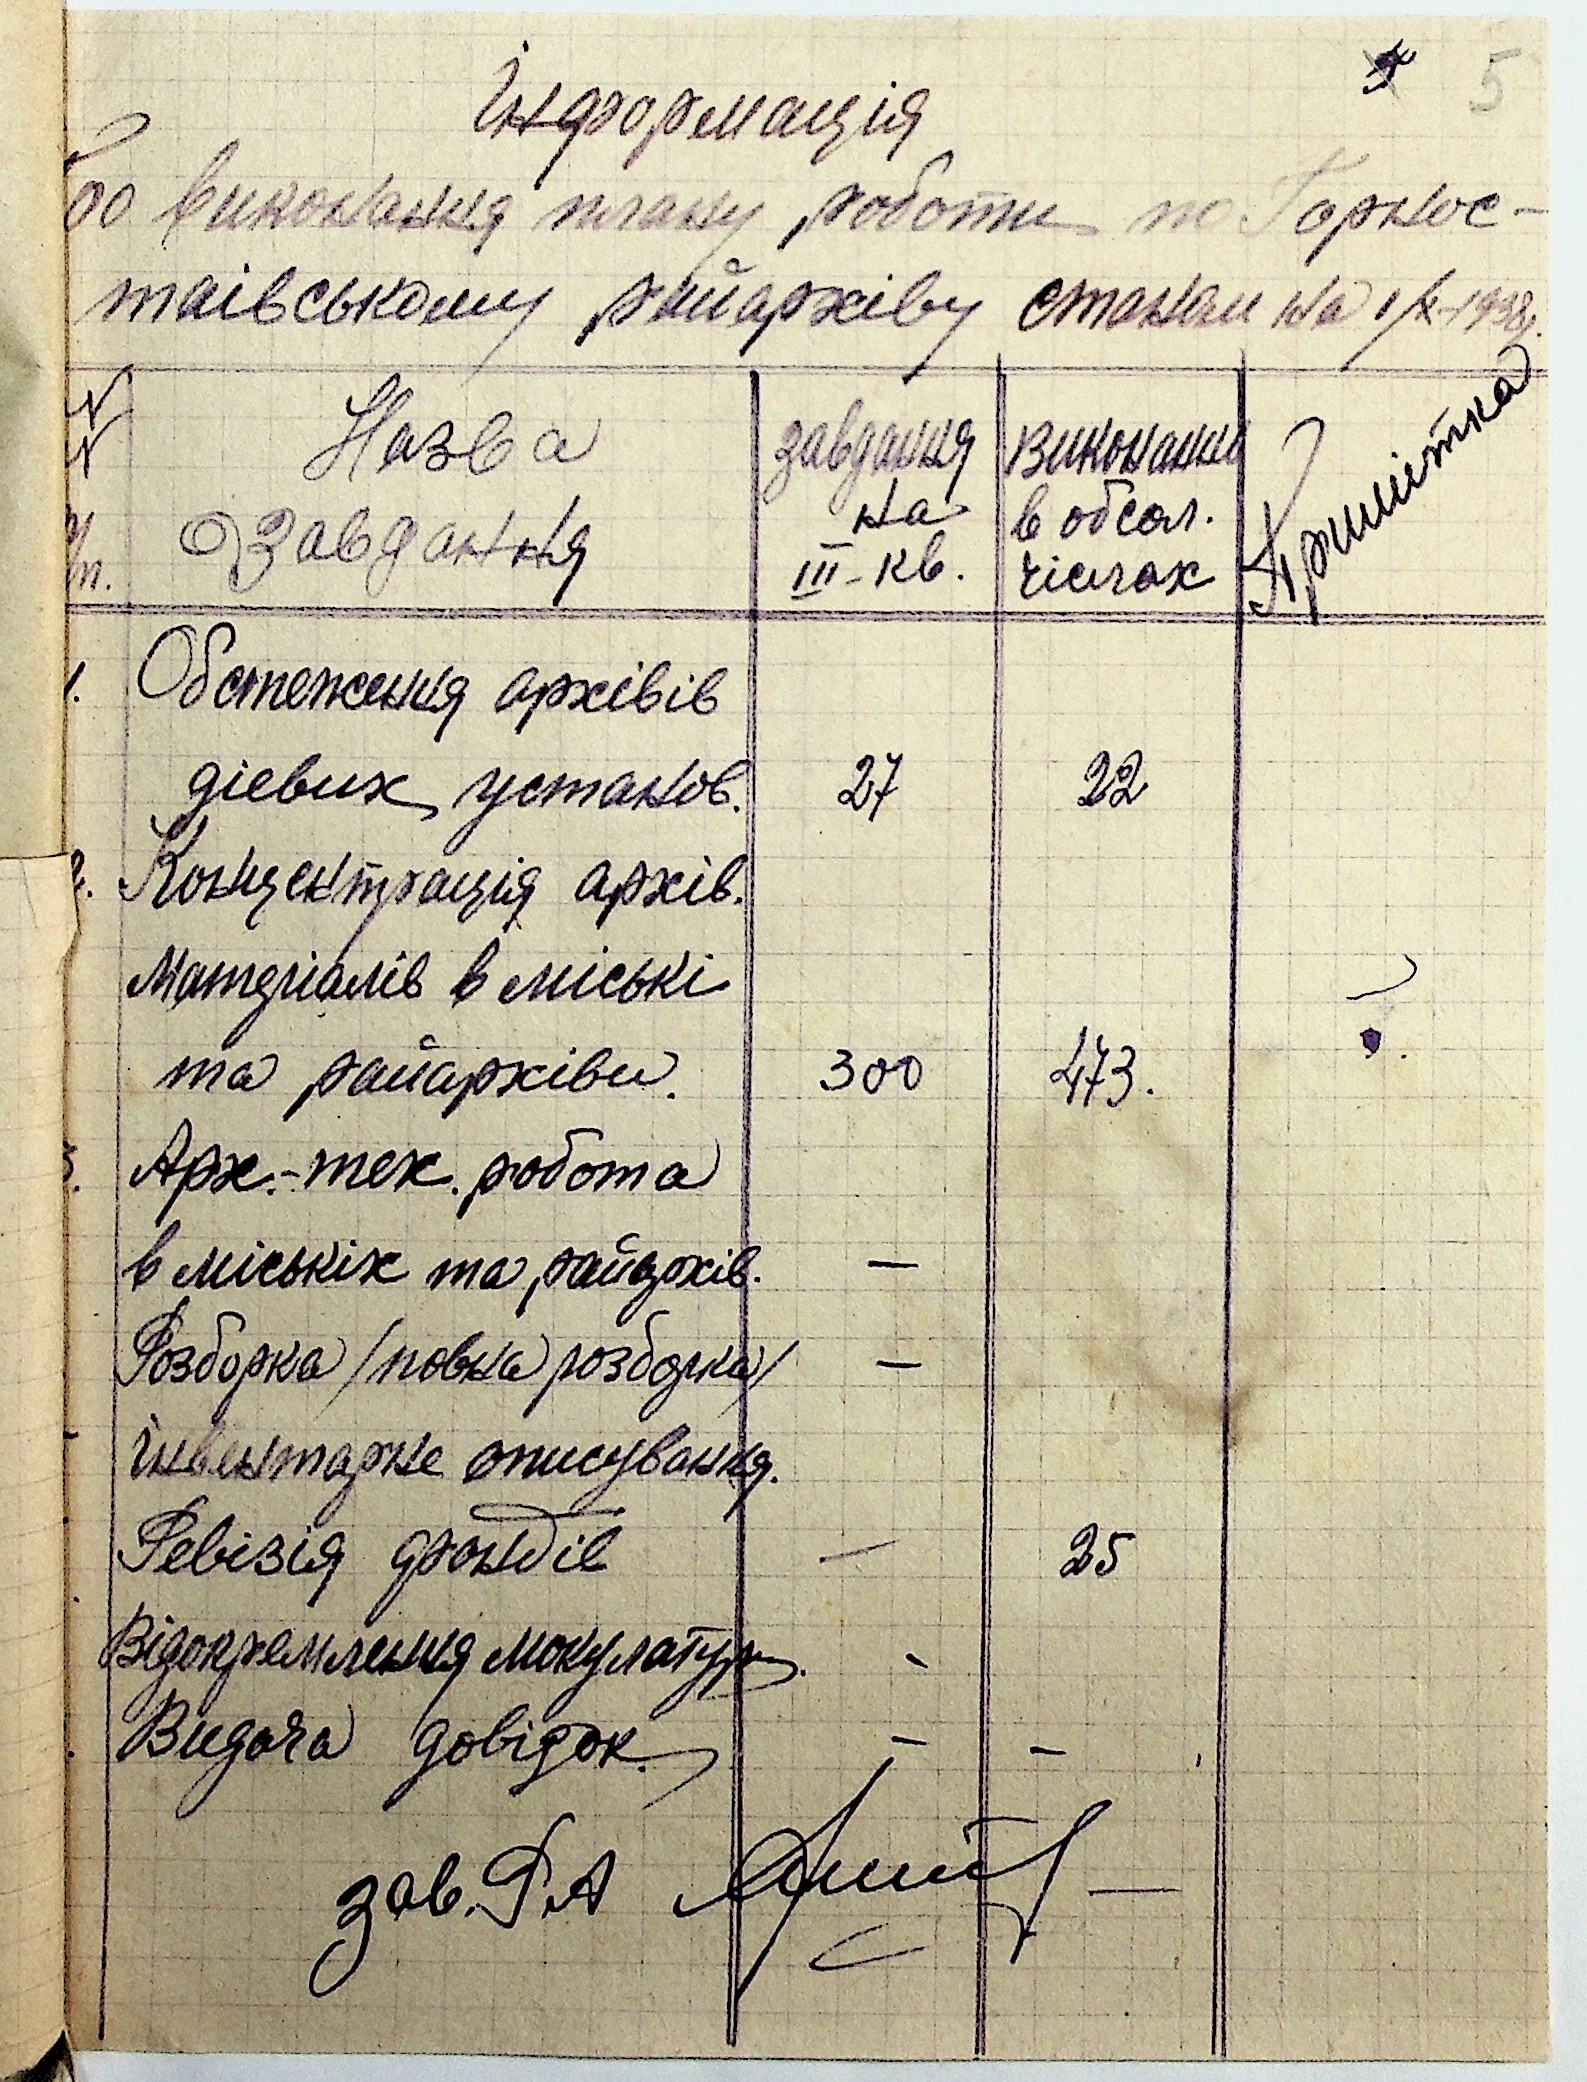 5
Інформація
до виконання плану роботи по Горнос-
таівському райархіву станом на 1/X-1938р.
N N п/п.
Назва завдання
завдання на III-кв.
Виконання в обсол. чіслах
Примітка
1. Обстеження архівів
дієвих установ. 27 22
2. Концентрація архів.
матеріалів в міські
та райархіви. 300 473.
3. Арх.-тех. робота
в міськіх та райархів. —
Розборка /повна розборка/ —
інвентарне описування.
Ревізія фондів — 25
Відокремлення мокулатури. -
Видача довідок. - -
зав. РА